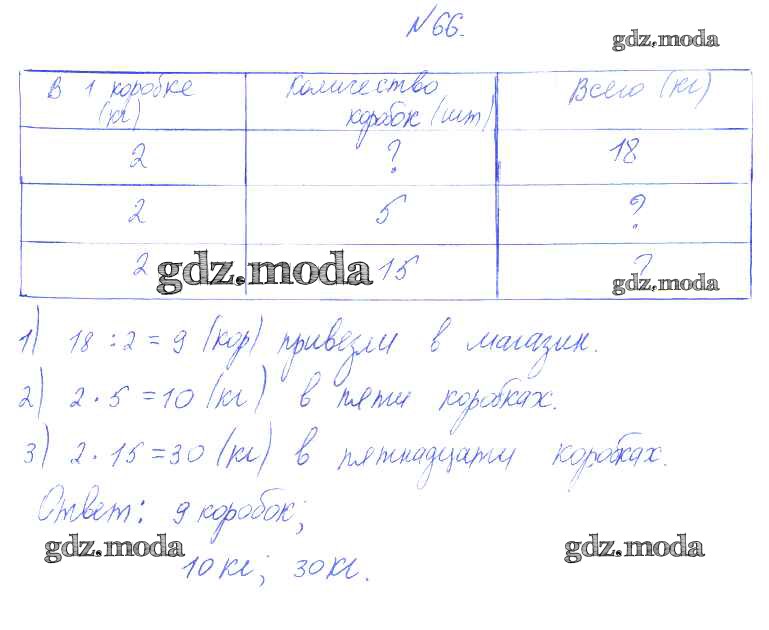 №66.
gdz.moda
В 1 коробке (кг) Количество коробок (шт) Всего (кг)
2 ? 18
2 5 ?
2 15 ?
gdz.moda gdz.moda
1) 18 : 2 = 9 (кор) привезли в магазин.
2) 2 · 5 = 10 (кг) в пяти коробках.
3) 2 · 15 = 30 (кг) в пятнадцати коробках.
Ответ: 9 коробок;
gdz.moda gdz.moda
10 кг; 30 кг.